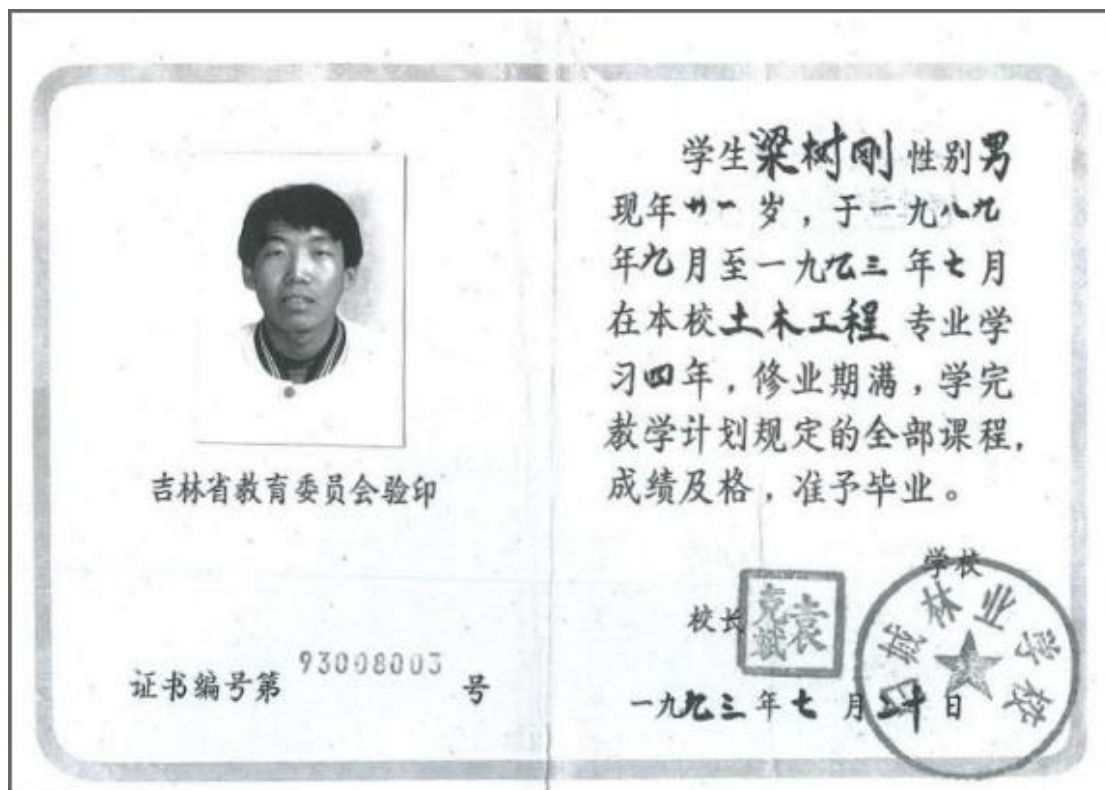 吉林省教育委员会验印
证书编号第 93008003 号
学生梁树刚 性别男
现年廿一 岁，于一九八九
年九月至一九九三 年七月
在本校土木工程 专业学
习四年，修业期满，学完
教学计划规定的全部课程，
成绩及格，准予毕业。
学校
校长 袁克斌
白城林业学校
一九九三年七 月二十日